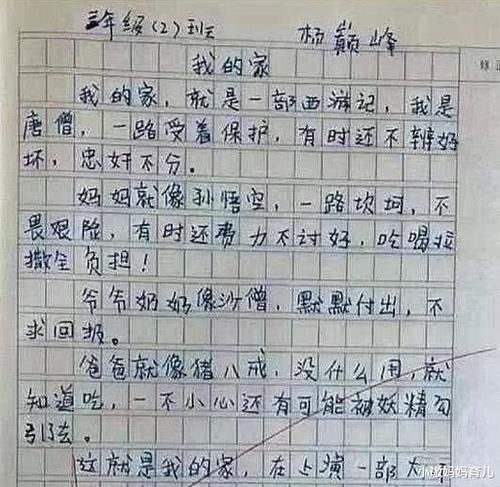 三年级(2)班 杨巅峰
我的家
我的家，就是一部西游记，我是
唐僧，一路受着保护，有时还不辨好
坏，忠奸不分。
妈妈就像孙悟空，一路坎坷，不
畏艰险，有时还费力不讨好，吃喝拉
撒全负担！
爷爷奶奶像沙僧，默默付出，不
求回报。
爸爸就像猪八戒，没什么用，就
知道吃，一不小心还有可能被妖精勾
引去。
这就是我的家，在上演一部大
小傲妈妈育儿